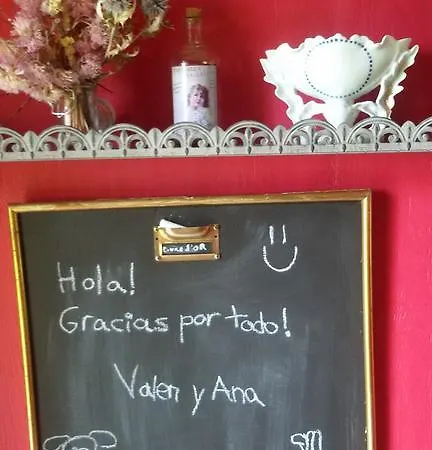 comedor
Hola!
Gracias por todo!
Valen y Ana